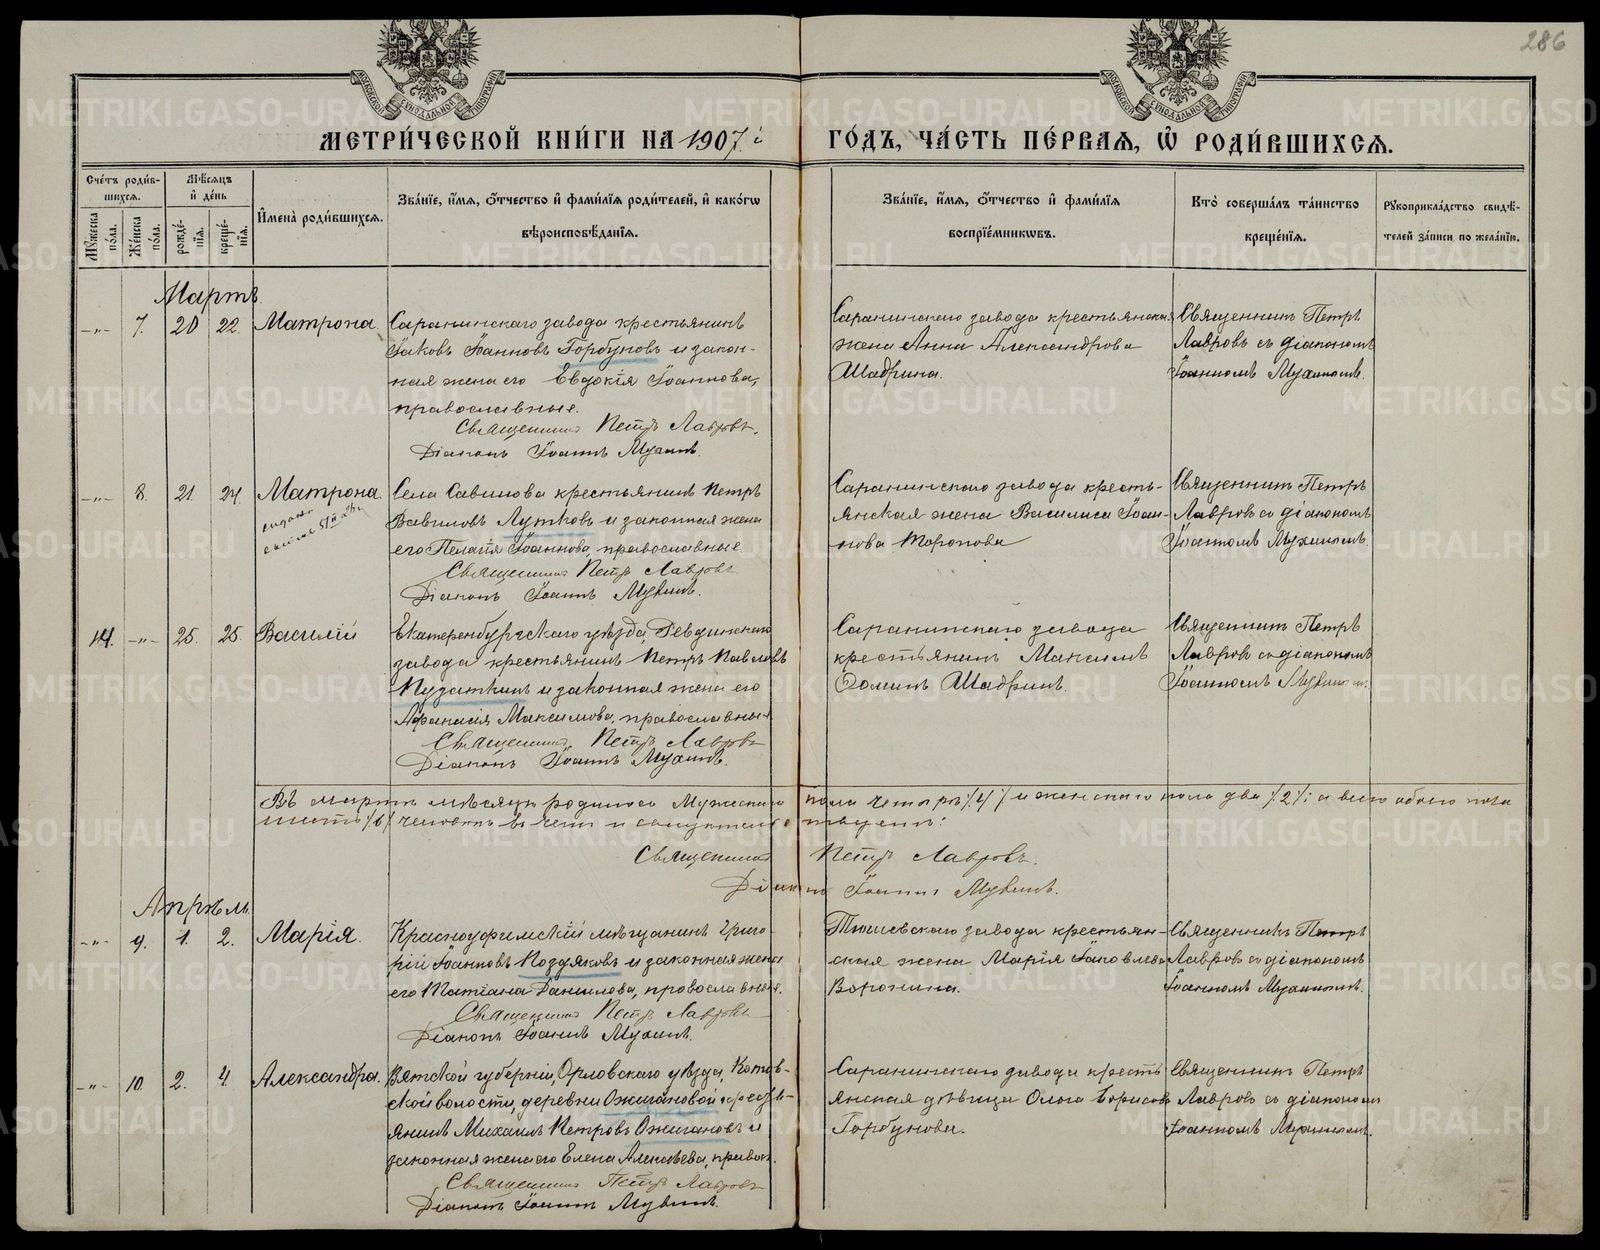 286
МЕТРИ́ЧЕСКОЙ КНИ́ГИ НА 1907 й ГО́ДЪ, ЧА́СТЬ ПЕ́РВАѦ, Ѡ҆ РОДИ́ВШИХСѦ.
Сче́тъ роди́в-шихсѧ.
Мѣ́сѧцъ и҆ де́нь
И҆мена̀ роди́вшихсѧ.
Зва́нїе, и҆́мѧ, ѻ҆́тчество и҆ фами́лїѧ роди́телей, и҆ како́гѡ
вѣроисповѣ́данїѧ.
Зва́нїе, и҆́мѧ, ѻ҆́тчество и҆ фами́лїѧ
воспрїе́мникѡвъ.
Кто̀ соверша́лъ та́инство
креще́нїѧ.
Рꙋкоприкла́дство свидѣ́-
телей за́писи по жела́нїю.
Мꙋ́жеска по́ла.
Же́нска по́ла.
рожде́-нїѧ.
креще́-нїѧ.
Мартъ
-„- 7. 20 22. Матрона.
Саранинскаго завода крестьянинъ
Іаковъ Іоанновъ Горбуновъ и закон-
ная жена его Евдокія Іоаннова,
православные.
Священникъ Петръ Лавровъ.
Діаконъ Іоаннъ Мухинъ.
Саранинскаго завода крестьянская
жена Анна Александрова
Шадрина.
Священникъ Петръ
Лавровъ съ діакономъ
Іоанномъ Мухинымъ.
-„- 8. 21. 24. Матрона.
Села Савинова крестьянинъ Петръ
Вавиловъ Лутковъ и законная жена
его Пелагія Іоаннова, православные.
Священникъ Петръ Лавровъ
Діаконъ Іоаннъ Мухинъ.
Саранинскаго завода кресть-
янская жена Василиса Іоан-
нова Торопова
Священникъ Петръ
Лавровъ со діакономъ
Іоанномъ Мухинымъ.
14. -„- 25. 25. Василій
Екатеренбургскаго уѣзда, Ревдинскаго
завода крестьянинъ Петръ Павловъ
Пузаткинъ и законная жена его
Афанасія Максимова, православные
Священникъ Петръ Лавровъ
Діаконъ Іоаннъ Мухинъ.
Саранинскаго завода
крестьянинъ Максимъ
Ѳоминъ Шадринъ.
Священникъ Петръ
Лавровъ со діакономъ
Іоанномъ Мухинымъ.
Въ мартѣ мѣсяцѣ родилось Мужескаго пола четыре /4/ и женскаго пола два /2/; а всего обоего пола
шесть /6/ человѣкъ
Священникъ Петръ Лавровъ.
Діаконъ Іоаннъ Мухинъ.
Апрѣль.
-„- 9. 1. 2. Марія.
Красноуфимскій мѣщанинъ Григо-
рій Іоанновъ Поздяковъ и законная жена
его Татіана Данилова, православные.
Священникъ Петръ Лавровъ
Діаконъ Іоаннъ Мухинъ.
Тисовскаго завода крестьян-
ская жена Марія Іаковлева
Воронина.
Священникъ Петръ
Лавровъ со діакономъ
Іоанномъ Мухинымъ.
-„- 10. 2. 4. Александра.
Вятской губерніи, Орловскаго уѣзда, Котов-
ской волости, деревни Ожигановой кресть-
янинъ Михаилъ Петровъ Ожигановъ и
законная жена его Елена Алексѣева, правосл.
Священникъ Петръ Лавровъ
Діаконъ Іоаннъ Мухинъ.
Саранинскаго завода кресть
янская дѣвица Ольга Борисова
Горбунова.
Священникъ Петръ
Лавровъ со діакономъ
Іоанномъ Мухинымъ.
METRIKI.GASO-URAL.RU